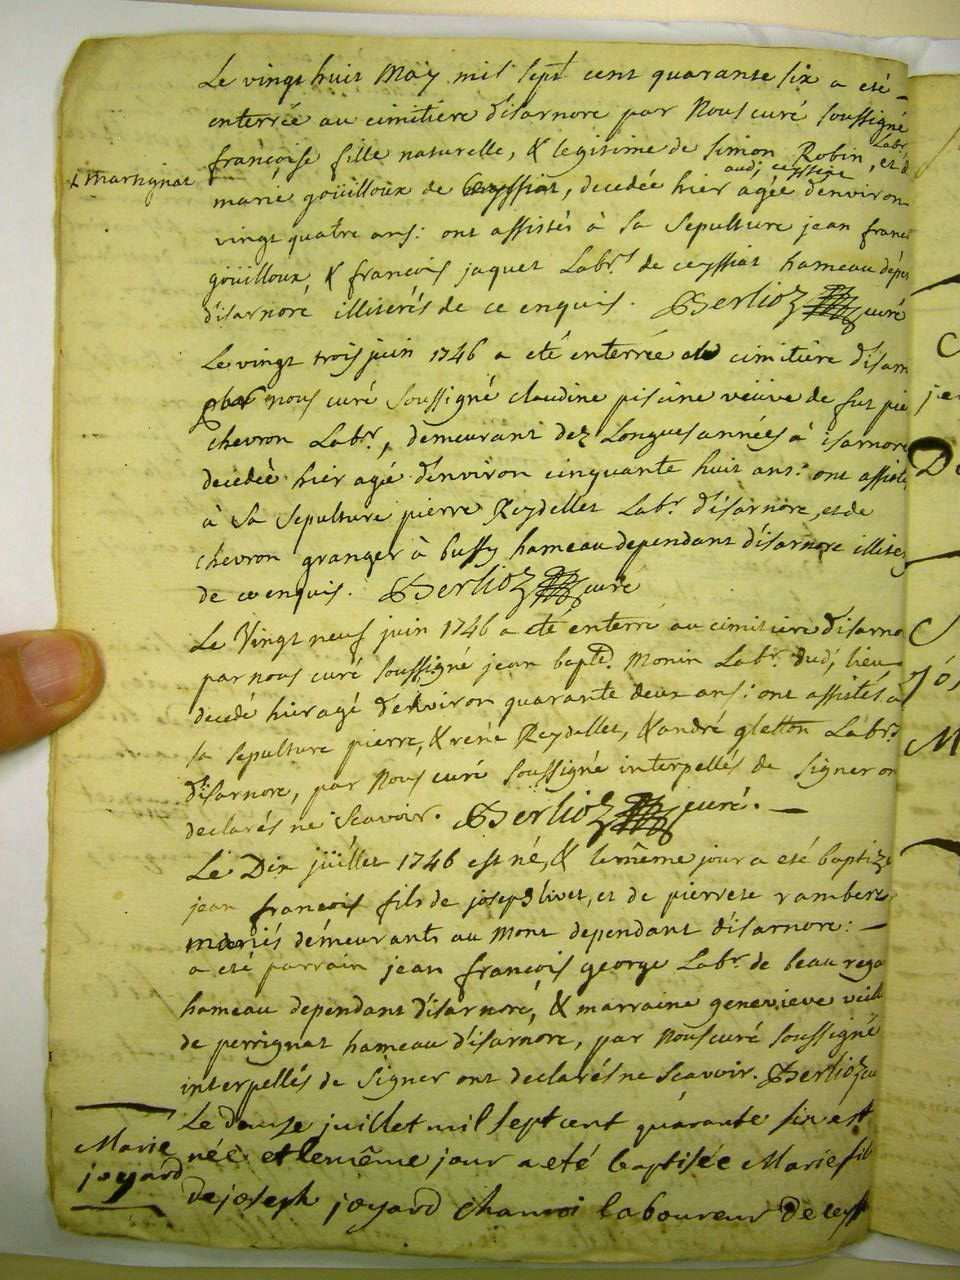 Le vingt huit May mil sept cent quarante six a eté
enterrée au cimitiere d'isarnore par Nous curé soussigné
françoise fille naturelle, & legitime de simon Robin Labr, et d
+ martignat
marie goüilloux de ceyssiat, decedée hier agée d'environ
vingt quatre ans: ont assistés à sa sepulture jean franc
goüilloux, & francois jaquet Labrs de ceyssiat hameau dépe
d'isarnore illiterés de ce enquis. Berlioz curé
Le vingt trois juin 1746 a eté enterrée au cimitiere d'isarn
par nous curé soussigné claudine piscine veuve de fut pie
chevron Labr, demeurant dez Longues années à isarnore
decedée hier agé d'environ cinquante huit ans: ont assisté
à sa sepulture pierre Reydellet Labr d'isarnore, et de
chevron granger à bussy hameau dependant d'isarnore illite
de ce enquis. Berlioz curé
Le Vingt neuf juin 1746 a eté enterré au cimitiere d'isarno
par nous curé soussigné jean baptd Monin Labr dud, lieu
decedé hier agé d'environ quarante deux ans: ont assistés a
sa sepulture pierre, & rené Reydellet, & andré gletton Labrs
d'isarnore, par Nous curé soussigné interpellés de signer on
declarés ne scavoir. Berlioz curé.
Le Dix jüillet 1746 est né, & le même jour a eté baptize
jean françois fils de joseph livet, et de pierrete rambert
mariés démeurants au Mont dependant d'isarnore:
a eté parrain jean françois george Labr de beau rega
hameau dependant d'isarnore, & marraine genevieve vuill
de perrignat hameau d'isarnore, par Nous curé soussigné
interpellés de signer ont declarés ne scavoir. Berlioz cu
Le douze juillet mil sept cent quarante six est
Marie
joyard
née et le même jour a eté baptisée Marie fil
de joseph joyard chanoi laboureur de ceyss